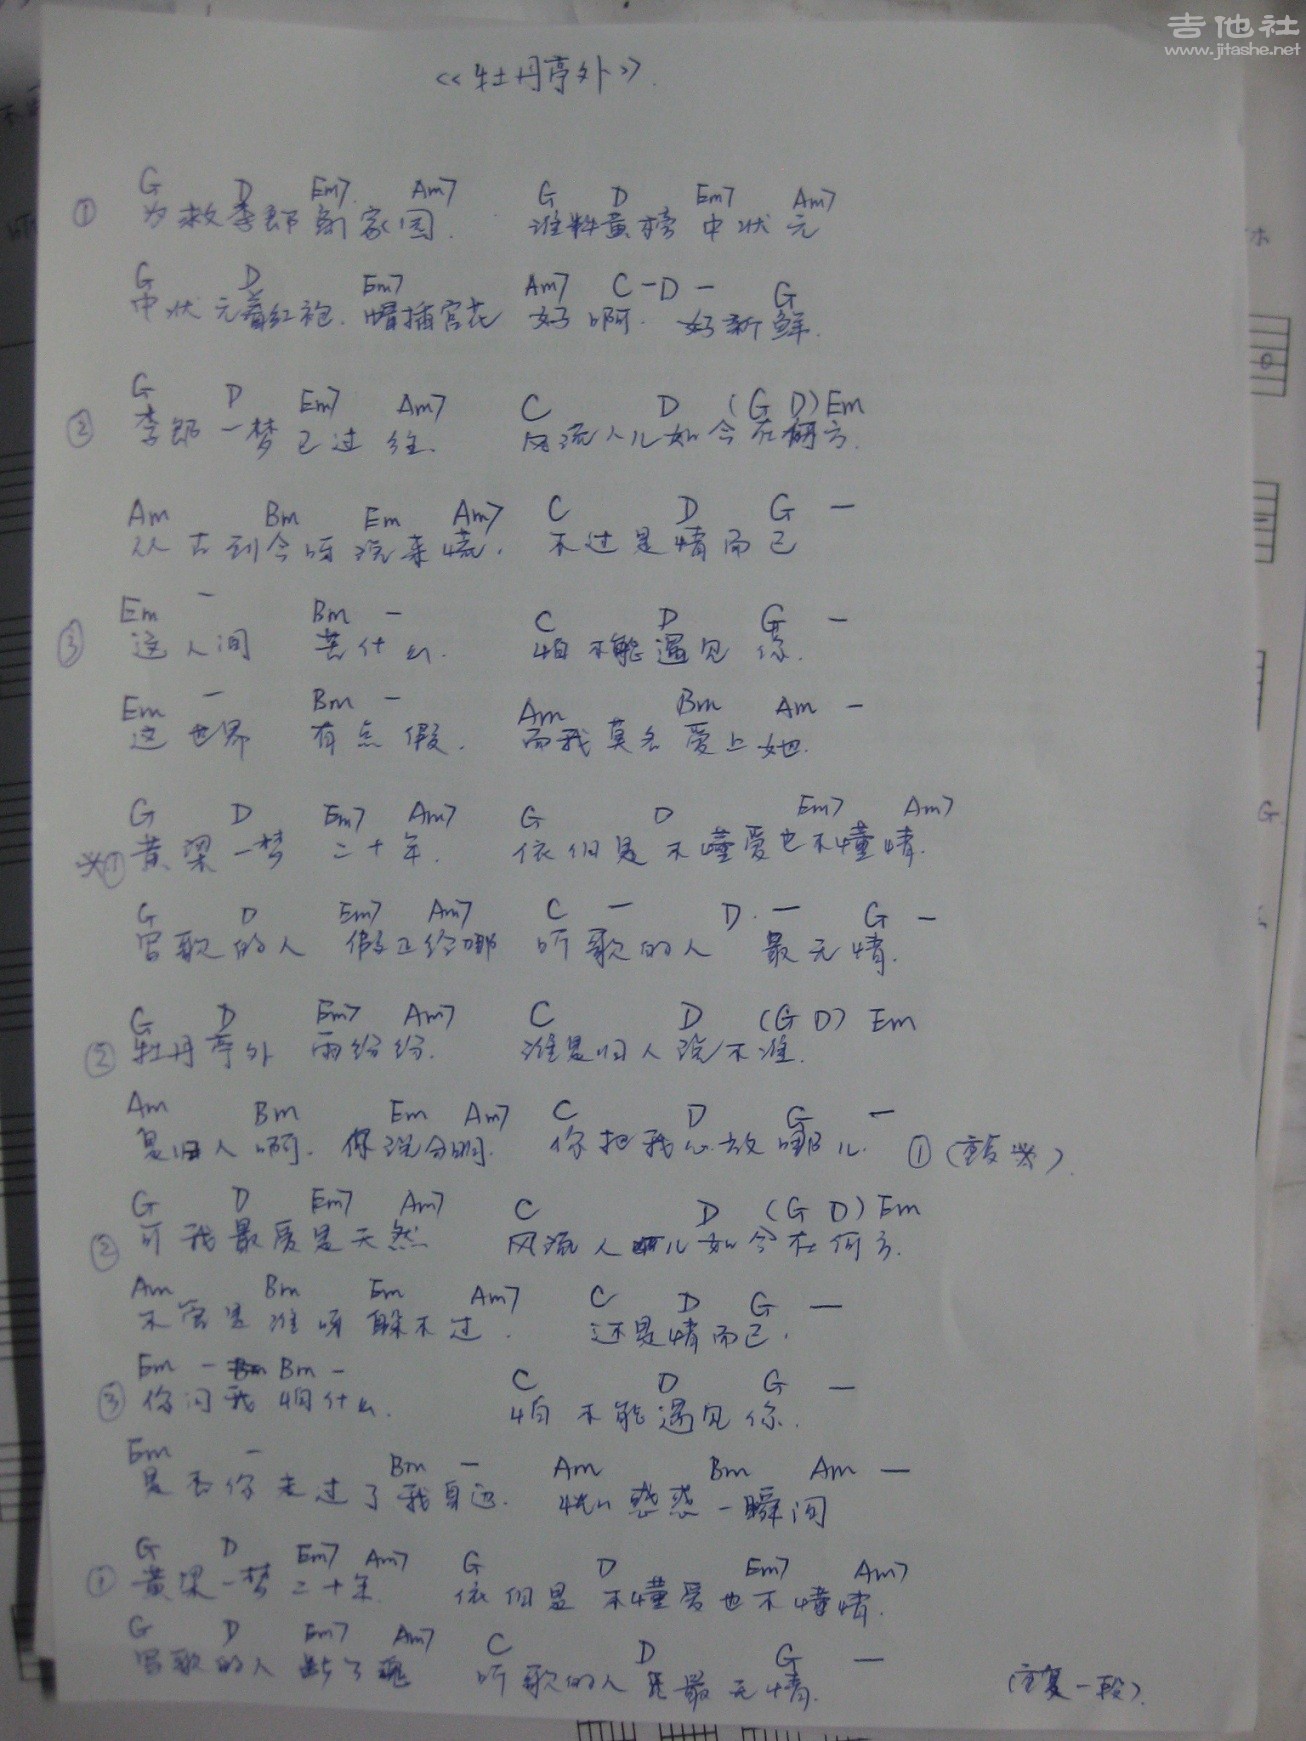 吉他社
www.jitashe.net
《牡丹亭外》.
G D Em7 Am7 G D Em7 Am7
① 为救李郎离家园. 谁料黄榜中状元
G D Em7 Am7 C - D - G
中状元着红袍. 帽插宫花 好啊. 好新鲜.
G D Em7 Am7 C D (G D) Em
② 李郎一梦已过往. 风流人儿如今在何方.
Am Bm Em Am7 C D G -
从古到今呀说来慌. 不过是情而已
Em - Bm - C D G -
③ 这人间 苦什么. 怕不能遇见你.
Em - Bm - Am Bm Am -
这世界 有点假. 而我莫名爱上她.
G D Em7 Am7 G D Em7 Am7
※① 黄梁一梦 二十年. 依旧是不懂爱也不懂情.
G D Em7 Am7 C - D. - G -
写歌的人 假正经哪 听歌的人 最无情.
G D Em7 Am7 C D (G D) Em
② 牡丹亭外 雨纷纷. 谁是归人说不准.
Am Bm Em Am7 C D G -
是归人啊. 你说分明. 你把我心放哪儿. ① (重复※).
G D Em7 Am7 C D (G D) Em
② 可我最爱是天然 风流人儿如今在何方.
Am Bm Em Am7 C D G -
不管是谁呀躲不过. 还是情而已.
Em - Bm - C D G -
③ 你问我怕什么. 怕不能遇见你.
Em - Bm - Am Bm Am -
是否你走过了我身边. 恍惑惑一瞬间
G D Em7 Am7 G D Em7 Am7
① 黄梁一梦二十年. 依旧是不懂爱也不懂情.
G D Em7 Am7 C D G -
写歌的人断了魂 听歌的人是最无情. (重复一段).
G